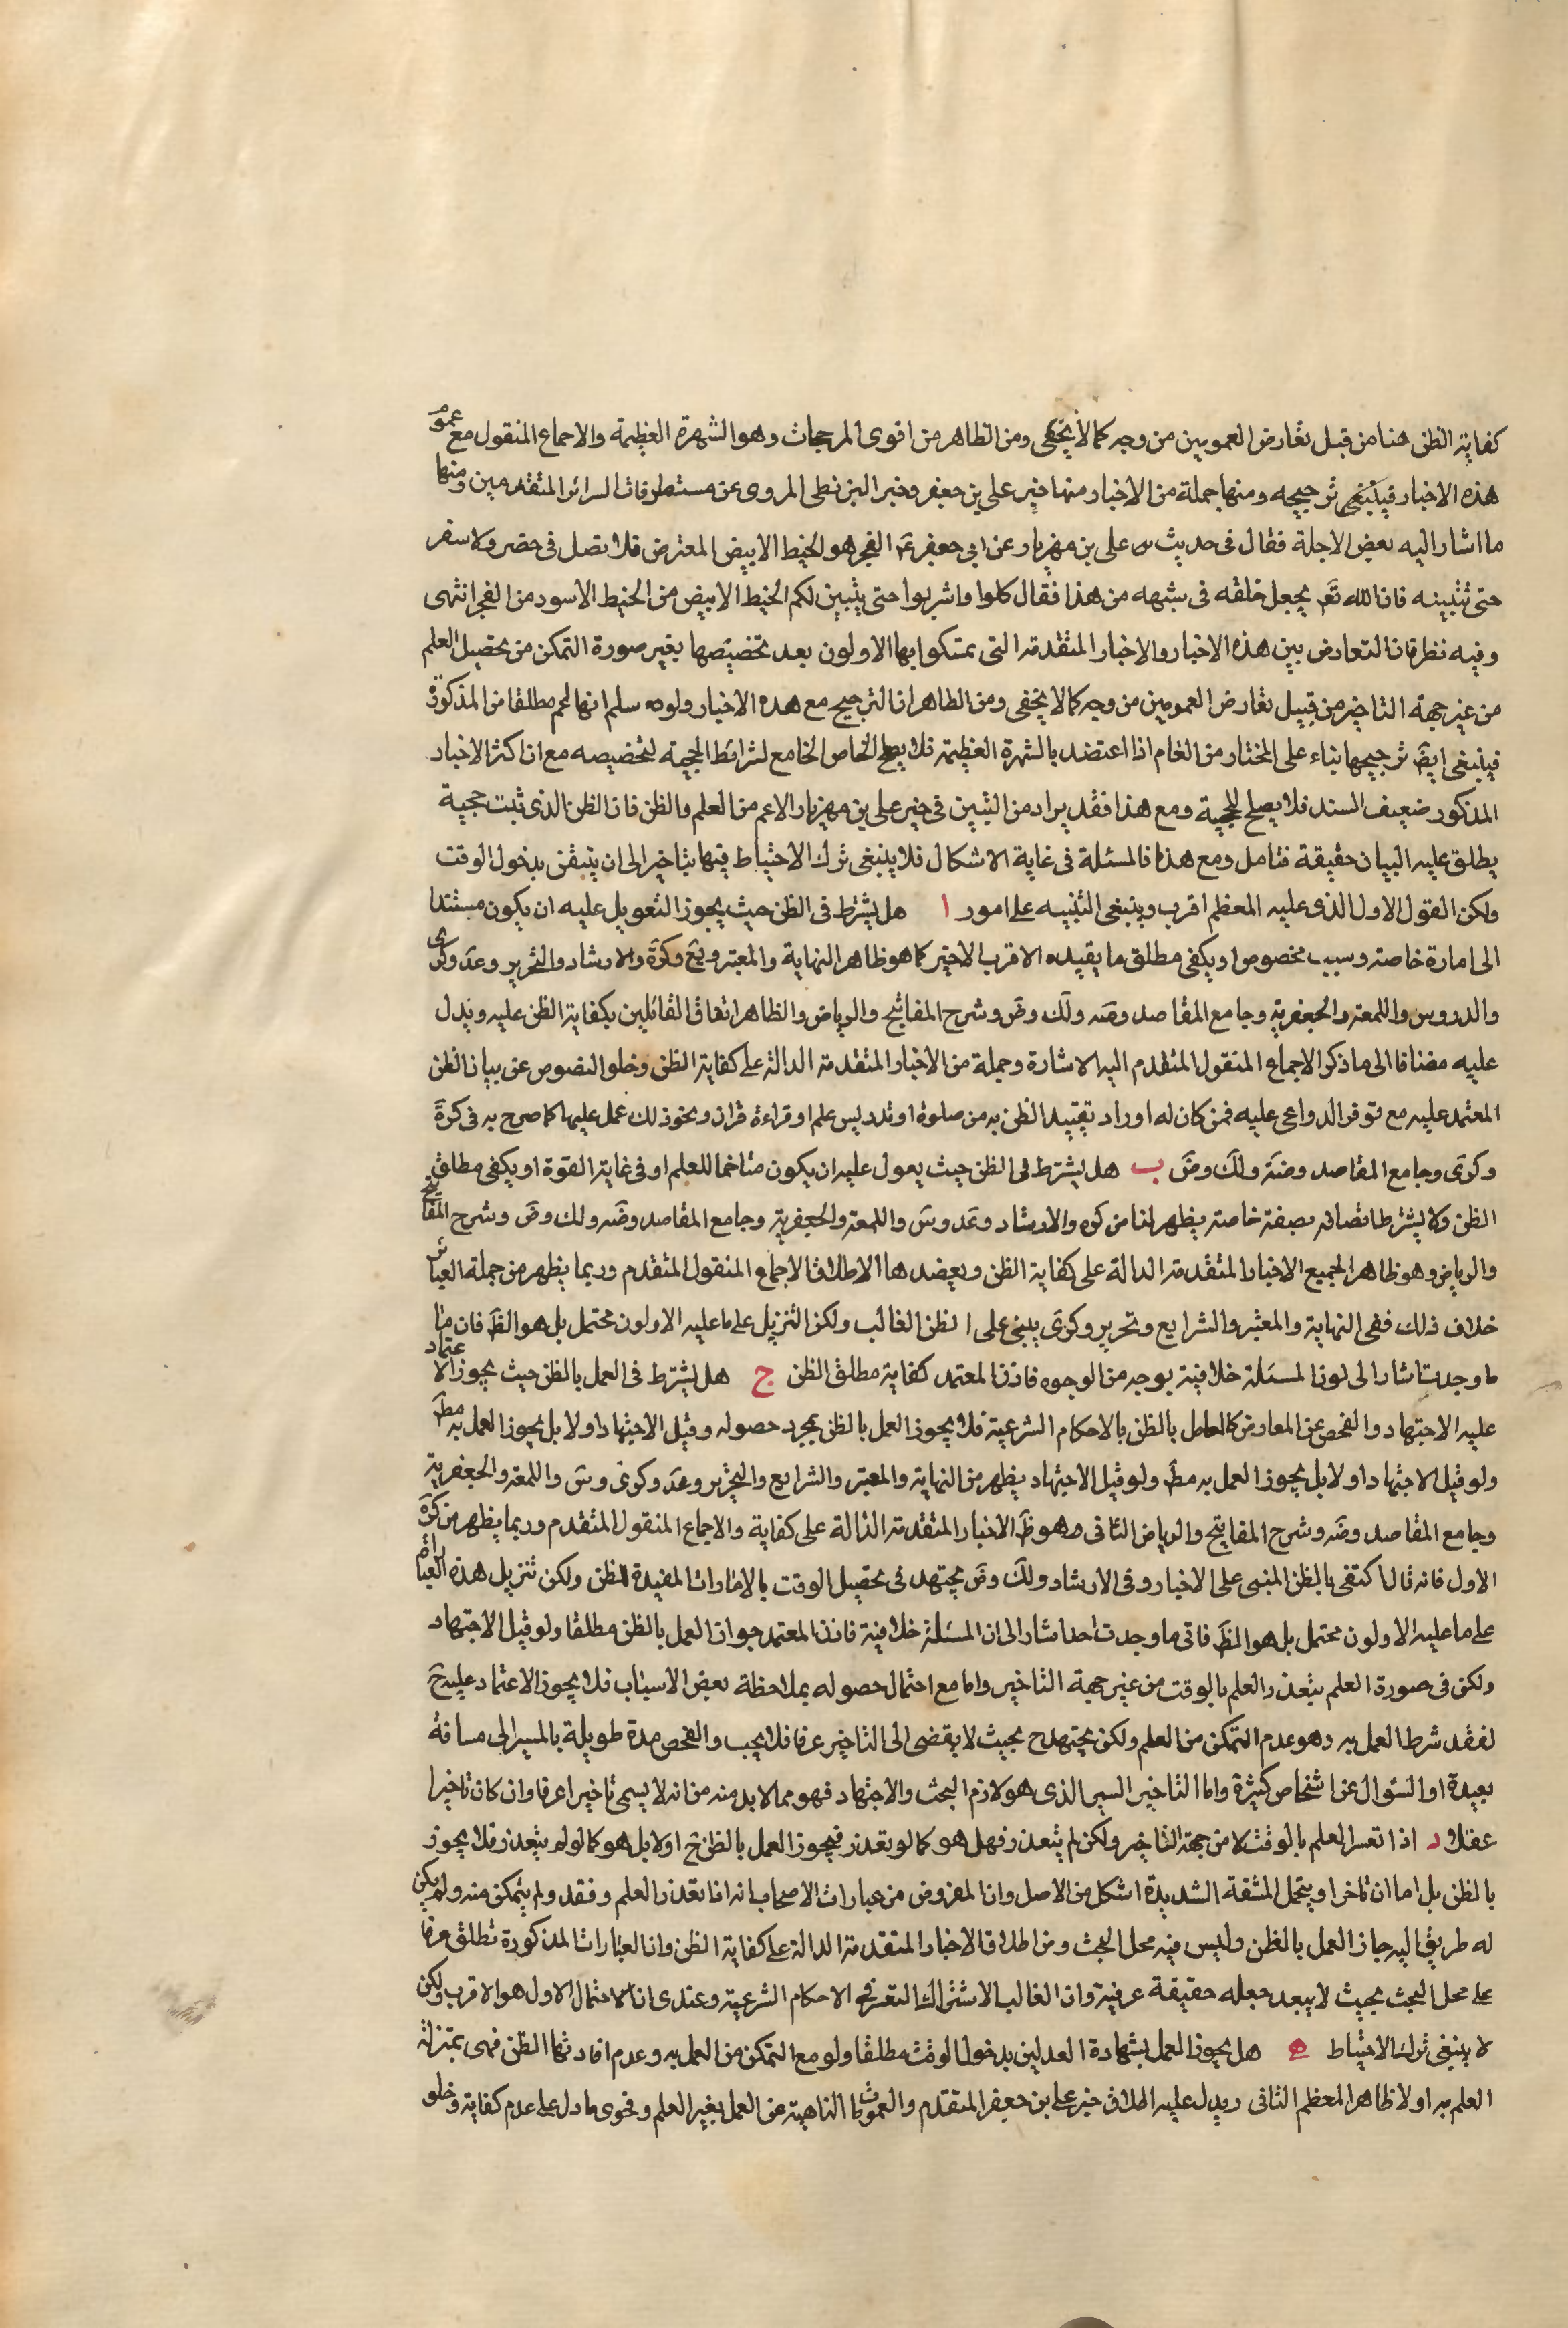 كفاية الظن هنا من قبل تعارض العمومين من وجه كما لا يخفى ومن الظاهر من اقوى المرجحات وهو الشهرة العظيمة والاجماع المنقول مع عموم
هذه الاخبار فينبغى ترجيحه ومنها جملة من الاخبار منها خبر على بن جعفر وخبر البزنطى المروى عن مستطرفات السرائر المتقدمين ومنها
ما اشار اليه بعض الاجلة فقال فى حديث على بن مهزيار عن ابى جعفر عَ الفجر هو الخيط الابيض المعترض فلا تصل فى حضر ولا سفر
حتى تتبينه فان الله تعَ لم يجعل خلقه فى شبهه من هذا فقال كلوا واشربوا حتى يتبين لكم الخيط الابيض من الخيط الاسود من الفجر انتهى
وفيه نظر فان التعارض بين هذه الاخبار والاخبار المتقدمة التى تمسكوا بها الاولون بعد تخصيصها بغير صورة التمكن من تحصيل العلم
من غير جهة التاخير من قبيل تعارض العمومين من وجه كما لا يخفى ومن الظاهر ان الترجيح مع هذه الاخبار ولو سلم انها اعم مطلقا من المذكورة
فينبغى ايضَ ترجيحها بناء على المختار من العام اذا اعتضد بالشهرة العظيمة فلا يصلح الخاص الجامع لشرائط الحجية لتخصيصه مع ان اكثر الاخبار
المذكور ضعيف السند فلا يصلح للحجية ومع هذا فقد يراد من التبين فى خبر على بن مهزيار الاعم من العلم والظن فان الظن الذى ثبت حجية
يطلق عليه البيان حقيقة فتامل ومع هذا فالمسئلة فى غاية الاشكال فلا ينبغى ترك الاحتياط فيها بتاخير الى ان يتيقن بدخول الوقت
ولكن القول الاول الذى عليه المعظم اقرب وينبغى التنبيه على امور ا هل يشترط فى الظن حيث يجوز التعويل عليه ان يكون مستندا
الى امارة خاصة وسبب مخصوص او يكفى مطلق ما يفيده الاقرب الاخير كما هو ظاهر النهاية والمعتبر ويَع وكرَة والارشاد والتحرير وعَد وكرى
والدروس واللمعة والجعفرية وجامع المقاصد وضَه ولَك وضَ وشرح المفاتيح والرياض والظاهر اتفاق القائلين بكفاية الظن عليه ويدل
عليه مضافا الى ما ذكر الاجماع المنقول المتقدم اليه الاشارة وجملة من الاخبار المتقدمة الدالة على كفاية الظن وخلو النصوص عن بيان الظن
المعتمد عليه مع توفر الدواعى عليه فمن كان له اوراد تفيد الظن به من صلوة او تدريس علم او قراءة قران ونحو ذلك عمل عليها كما صرح به فى كرَة
وكرَى وجامع المقاصد وضَة ولَك وضَ ب هل يشترط فى الظن حيث يعول عليه ان يكون متاخما للعلم او فى غاية القوة او يكفى مطلق
الظن ولا يشترط اتصافه بصفة خاصة يظهر لنا من كره والارشاد وعَد وسَ واللمعة والجعفرية وجامع المقاصد وضَه ولك وضَ وشرح المفاتيح
والرياض وهو ظاهر الجميع الاخبار المتقدمة الدالة على كفاية الظن ويعضد هذا الاطلاق الاجماع المنقول المتقدم وربما يظهر من جملة العبائر
خلاف ذلك ففى النهاية والمعتبر والشرايع وتحرير وكرَى يبنى على الظن الغالب ولكن التنزيل على ما عليه الاولون محتمل بل هو الظَ فان منا
ما وجدت اشار الى لون المسئلة خلافية بوجه من الوجوه فاذن المعتمد كفاية مطلق الظن ج هل يشترط فى العمل بالظن حيث يجوز الاعتماد
عليه الاجتهاد والفحص عن المعارض كالعامل بالظن بالاحكام الشرعية فلا يجوز العمل بالظن بمجرد حصوله وقبل الاجتهاد اولا بل يجوز العمل به مطَ
ولو قبل الاجتهاد اولا بل يجوز العمل به مطَ ولو قبل الاجتهاد يظهر من النهاية والمعتبر والشرايع والتحرير وعَد وكرى وسَ واللمعة والجعفرية
وجامع المقاصد وضَه وشرح المفاتيح والرياض الثانى وهو ظَ الاخبار المتقدمة الدالة على كفاية والاجماع المنقول المتقدم وربما يظهر من كرَة
الاول فانه قال اكتفى بالظن المبنى على الاخبار وفى الارشاد ولَك وضَ مجتهد فى تحصيل الوقت بالامارات المفيدة للظن ولكن تنزيل هذه العبارات
على ما عليه الاولون محتمل بل هو الظَ فانى ما وجدت احدا اشار الى ان المسئلة خلافية فاذن المعتمد جواز العمل بالظن مطلقا ولو قبل الاجتهاد
ولكن فى صورة العلم بتعذر العلم بالوقت من غير جهة التاخير واما مع احتمال حصوله بملاحظة بعض الاسباب فلا يجوز الاعتماد عليه حَ
لفقد شرط العمل به وهو عدم التمكن من العلم ولكن يجتهد ح بحيث لا يفضى الى التاخير عرفا فلا يجب والفحص مدة طويلة بالمسير الى مسافة
بعيدة او السئوال عن اشخاص كثيرة واما التاخير اليسير الذى هو لازم البحث والاجتهاد فهو مما لا بد منه من انه لا يسمى تاخيرا عرفا وان كان تاخيرا
عقلا د اذا تعسر العلم بالوقت لا من جهة التاخير ولكن لم يتعذر فهل هو كما لو تعذر فيجوز العمل بالظن حَ اولا بل هو كما لو لم يتعذر فلا يجوز
بالظن بل اما ان تاخر او يتحمل المشقة الشديدة اشكل من الاصل وان المفروض من عبارات الاصحاب انه اذا تعذر العلم وفقد ولم يتمكن منه ولم يكن
له طريق اليه جاز العمل بالظن وليس فيه محل البحث ومن اطلاق الاخبار المتقدمة الدالة على كفاية الظن وان العبارات المذكورة تطلق عرفا
على محل البحث بحيث لا يبعد جعله حقيقة عرفية وان الغالب الاشتراك التعسر فى الاحكام الشرعية وعندى ان الاحتمال الاول هو الاقرب ولكن
لا ينبغى ترك الاحتياط ه هل يجوز العمل بشهادة العدلين بدخول الوقت مطلقا ولو مع التمكن من العمل به وعدم افادتها الظن فهى بمنزلة
العلم به اولا ظاهر المعظم الثانى ويدل عليه اطلاق خبر على بن جعفر المتقدم والعمومات الناهية عن العمل بغير العلم وفحوى ما دل على عدم كفاية وخلو